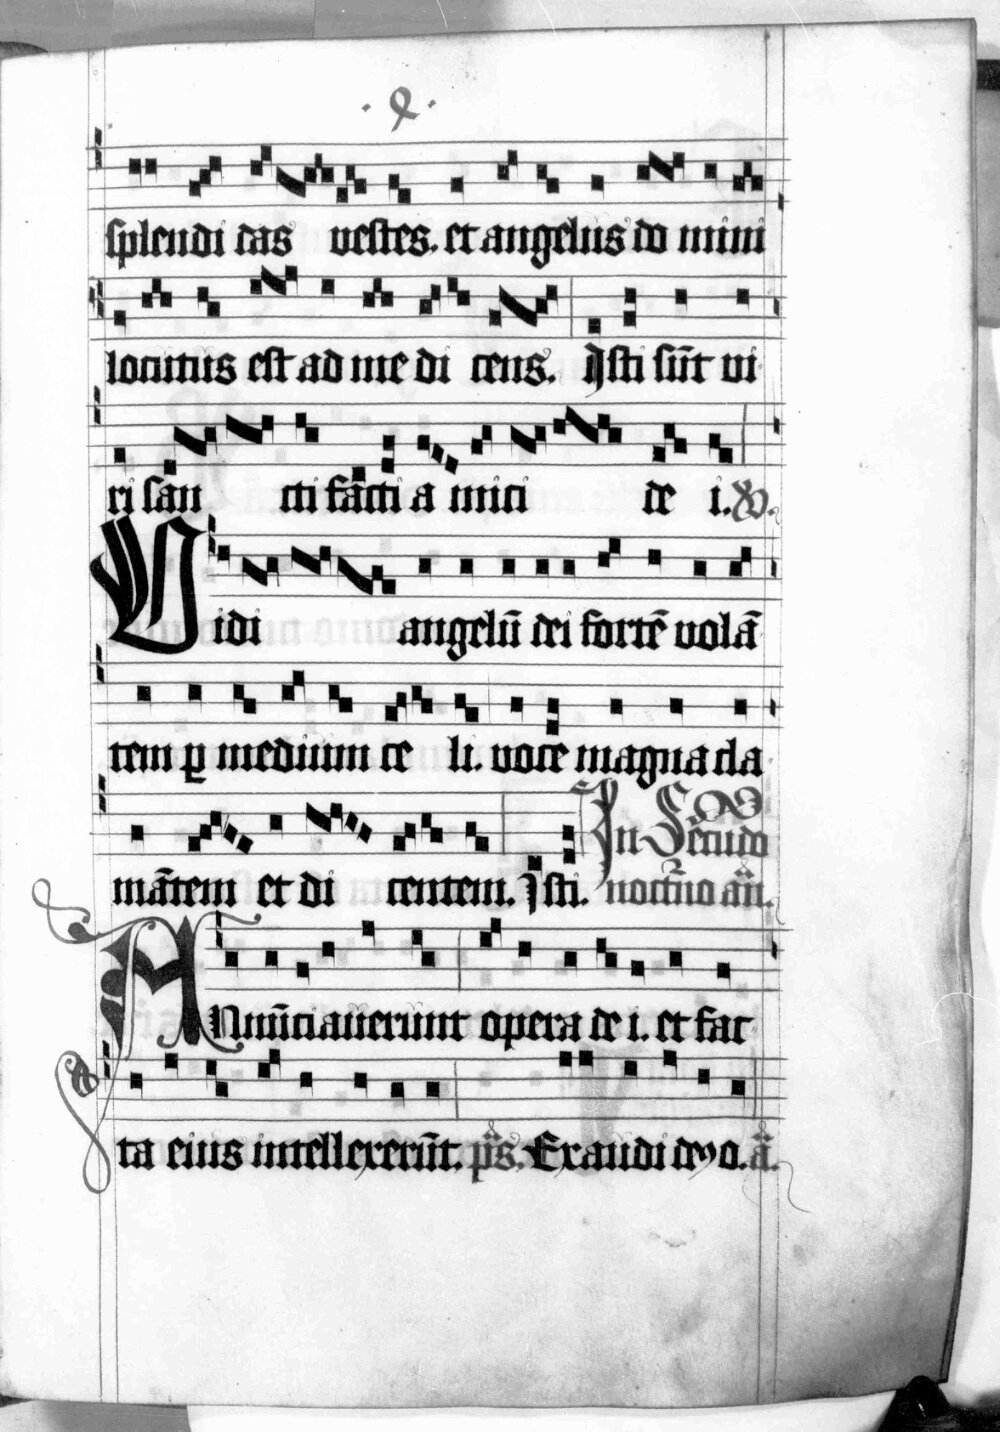 splendi das vestes. et angelus do mini
locutus est ad me di cens. Isti sūt vi
ri san cti facti a mici de i. ℣.
Vidi angelū dei fortē volā
tem ꝑ medium ce li. voce magna cla
mātem et di centem. Isti. In Scđo
noctn̄o an̄.
Annūciauerunt opera de i. et fac
ta eius intellexerūt. p̄s. Exaudi de9 o. an̄.